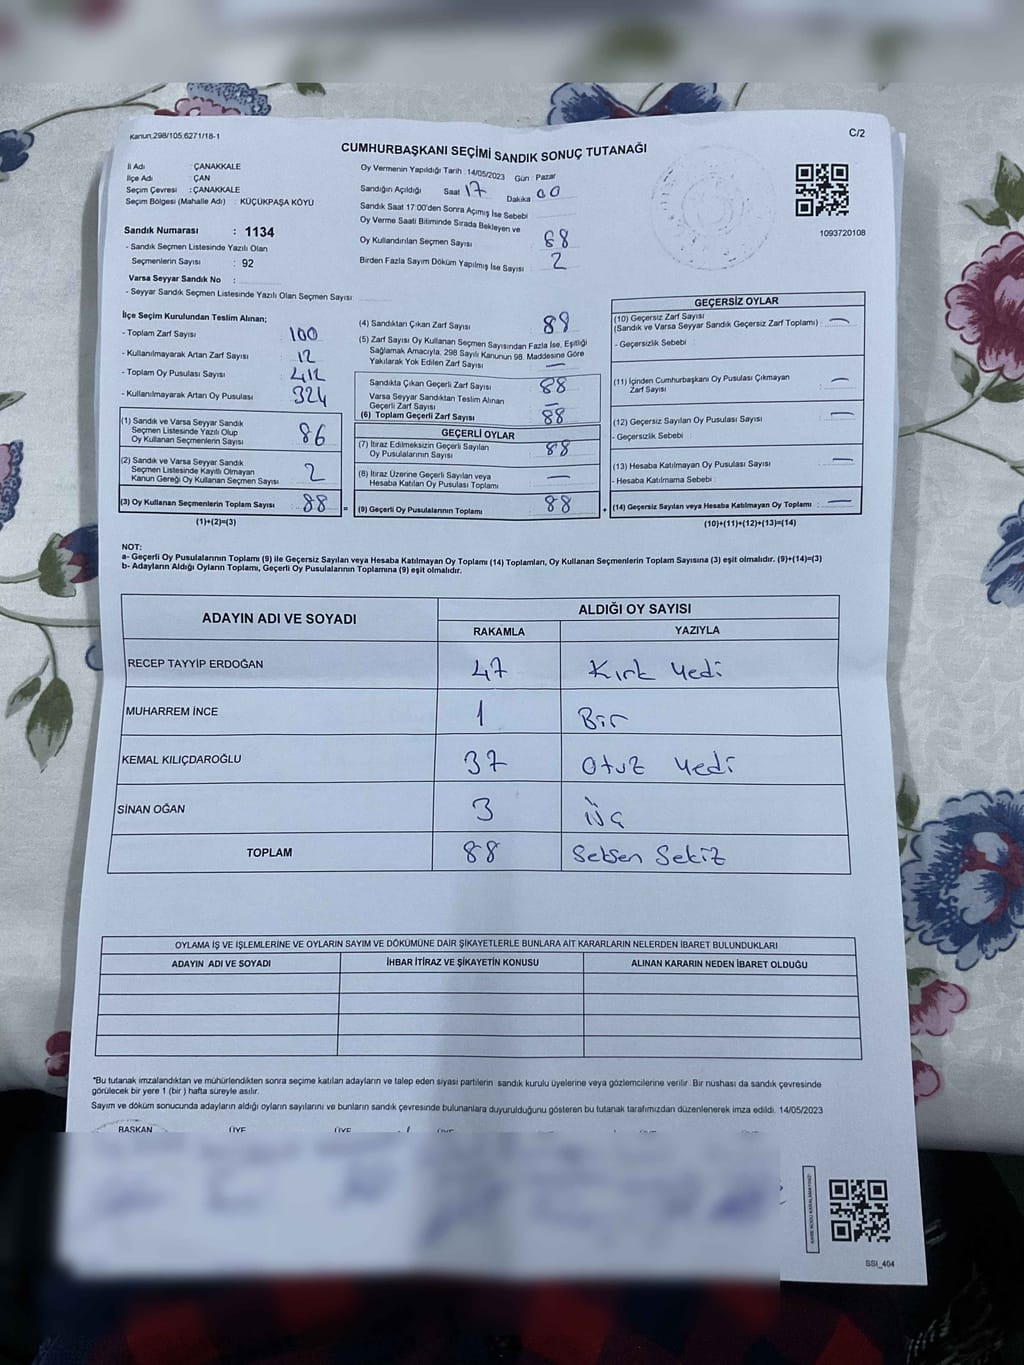 Kanun:298/105,6271/18-1
C/2
CUMHURBAŞKANI SEÇİMİ SANDIK SONUÇ TUTANAĞI
İl Adı : ÇANAKKALE
İlçe Adı : ÇAN
Seçim Çevresi : ÇANAKKALE
Seçim Bölgesi (Mahalle Adı) : KÜÇÜKPAŞA KÖYÜ
Sandık Numarası : 1134
- Sandık Seçmen Listesinde Yazılı Olan
Seçmenlerin Sayısı : 92
Varsa Seyyar Sandık No :
- Seyyar Sandık Seçmen Listesinde Yazılı Olan Seçmen Sayısı:
Oy Vermenin Yapıldığı Tarih : 14/05/2023 Gün : Pazar
Sandığın Açıldığı Saat 17 Dakika 00
Sandık Saat 17:00'den Sonra Açımış İse Sebebi
Oy Verme Saati Bitiminde Sırada Bekleyen ve
Oy Kullandırılan Seçmen Sayısı 88
Birden Fazla Sayım Döküm Yapılmış İse Sayısı 2
1093720108
İlçe Seçim Kurulundan Teslim Alınan;
- Toplam Zarf Sayısı 100
- Kullanılmayarak Artan Zarf Sayısı 12
- Toplam Oy Pusulası Sayısı 412
- Kullanılmayarak Artan Oy Pusulası 324
(1) Sandık ve Varsa Seyyar Sandık
Seçmen Listesinde Yazılı Olup
Oy Kullanan Seçmenlerin Sayısı 86
(2) Sandık ve Varsa Seyyar Sandık
Seçmen Listesinde Kayıtlı Olmayan
Kanun Gereği Oy Kullanan Seçmen Sayısı 2
(3) Oy Kullanan Seçmenlerin Toplam Sayısı 88 =
(1)+(2)=(3)
(4) Sandıktan Çıkan Zarf Sayısı 88
(5) Zarf Sayısı Oy Kullanan Seçmen Sayısından Fazla İse, Eşitliği
Sağlamak Amacıyla, 298 Sayılı Kanunun 98. Maddesine Göre
Yakılarak Yok Edilen Zarf Sayısı —
Sandıkta Çıkan Geçerli Zarf Sayısı 88
Varsa Seyyar Sandıktan Teslim Alınan
Geçerli Zarf Sayısı —
(6) Toplam Geçerli Zarf Sayısı 88
GEÇERLİ OYLAR
(7) İtiraz Edilmeksizin Geçerli Sayılan
Oy Pusulalarının Sayısı 88
(8) İtiraz Üzerine Geçerli Sayılan veya
Hesaba Katılan Oy Pusulası Toplamı —
(9) Geçerli Oy Pusulalarının Toplamı 88 +
GEÇERSİZ OYLAR
(10) Geçersiz Zarf Sayısı
(Sandık ve Varsa Seyyar Sandık Geçersiz Zarf Toplamı) : —
- Geçersizlik Sebebi :
(11) İçinden Cumhurbaşkanı Oy Pusulası Çıkmayan
Zarf Sayısı —
(12) Geçersiz Sayılan Oy Pusulası Sayısı —
- Geçersizlik Sebebi :
(13) Hesaba Katılmayan Oy Pusulası Sayısı —
- Hesaba Katılmama Sebebi :
(14) Geçersiz Sayılan veya Hesaba Katılmayan Oy Toplamı : —
(10)+(11)+(12)+(13)=(14)
NOT:
a- Geçerli Oy Pusulalarının Toplamı (9) ile Geçersiz Sayılan veya Hesaba Katılmayan Oy Toplamı (14) Toplamları, Oy Kullanan Seçmenlerin Toplam Sayısına (3) eşit olmalıdır. (9)+(14)=(3)
b- Adayların Aldığı Oyların Toplamı, Geçerli Oy Pusulalarının Toplamına (9) eşit olmalıdır.
ADAYIN ADI VE SOYADI
ALDIĞI OY SAYISI
RAKAMLA YAZIYLA
RECEP TAYYİP ERDOĞAN 47 Kırk Yedi
MUHARREM İNCE 1 Bir
KEMAL KILIÇDAROĞLU 37 Otuz Yedi
SİNAN OĞAN 3 Üç
TOPLAM 88 Seksen Sekiz
OYLAMA İŞ VE İŞLEMLERİNE VE OYLARIN SAYIM VE DÖKÜMÜNE DAİR ŞİKAYETLERLE BUNLARA AİT KARARLARIN NELERDEN İBARET BULUNDUKLARI
ADAYIN ADI VE SOYADI İHBAR İTİRAZ VE ŞİKAYETİN KONUSU ALINAN KARARIN NEDEN İBARET OLDUĞU
*Bu tutanak imzalandıktan ve mühürlendikten sonra seçime katılan adayların ve talep eden siyasi partilerin sandık kurulu üyelerine veya gözlemcilerine verilir. Bir nüshası da sandık çevresinde
görülecek bir yere 1 (bir) hafta süreyle asılır.
Sayım ve döküm sonucunda adayların aldığı oyların sayılarını ve bunların sandık çevresinde bulunanlara duyurulduğunu gösteren bu tutanak tarafımızdan düzenlenerek imza edildi. 14/05/2023
BAŞKAN ÜYE ÜYE ÜYE
SSI_404